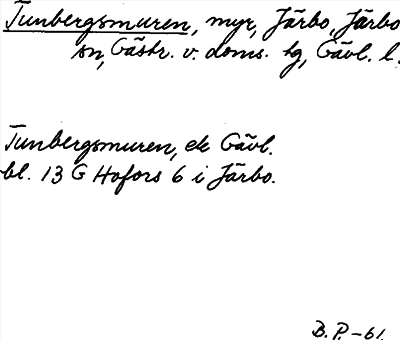 Tunbergsmuren, myr, Järbo, Järbo
sn, Gästr. v. doms. tg, Gävl. l.
Tunbergsmuren, ek Gävl.
bl. 13 G Hofors 6 i Järbo.
B.P. -61.